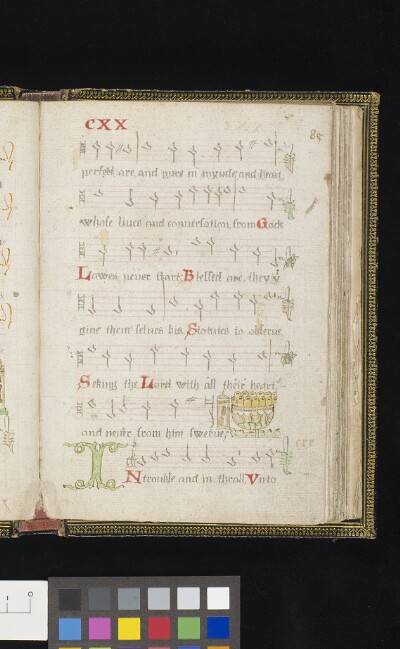 CXX
85
perfect are and pure in mynde and heart
whose lives and conversation, from Gods
Lawes never start, Blessed are they y
give them selves his Statutes to observe
Seking the Lord with all their heart,
and never from him swerve,
IN trouble and in thrall Vnto